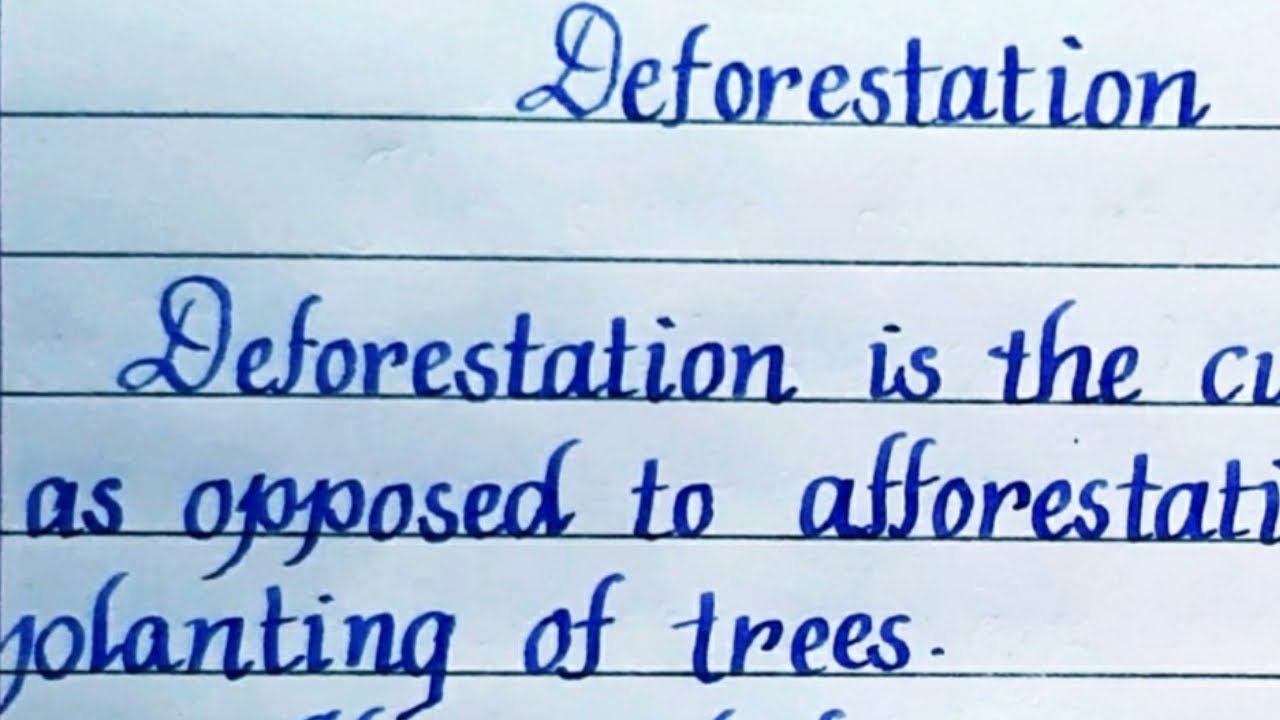 Deforestation
Deforestation is the cu
as opposed to afforestati
planting of trees.